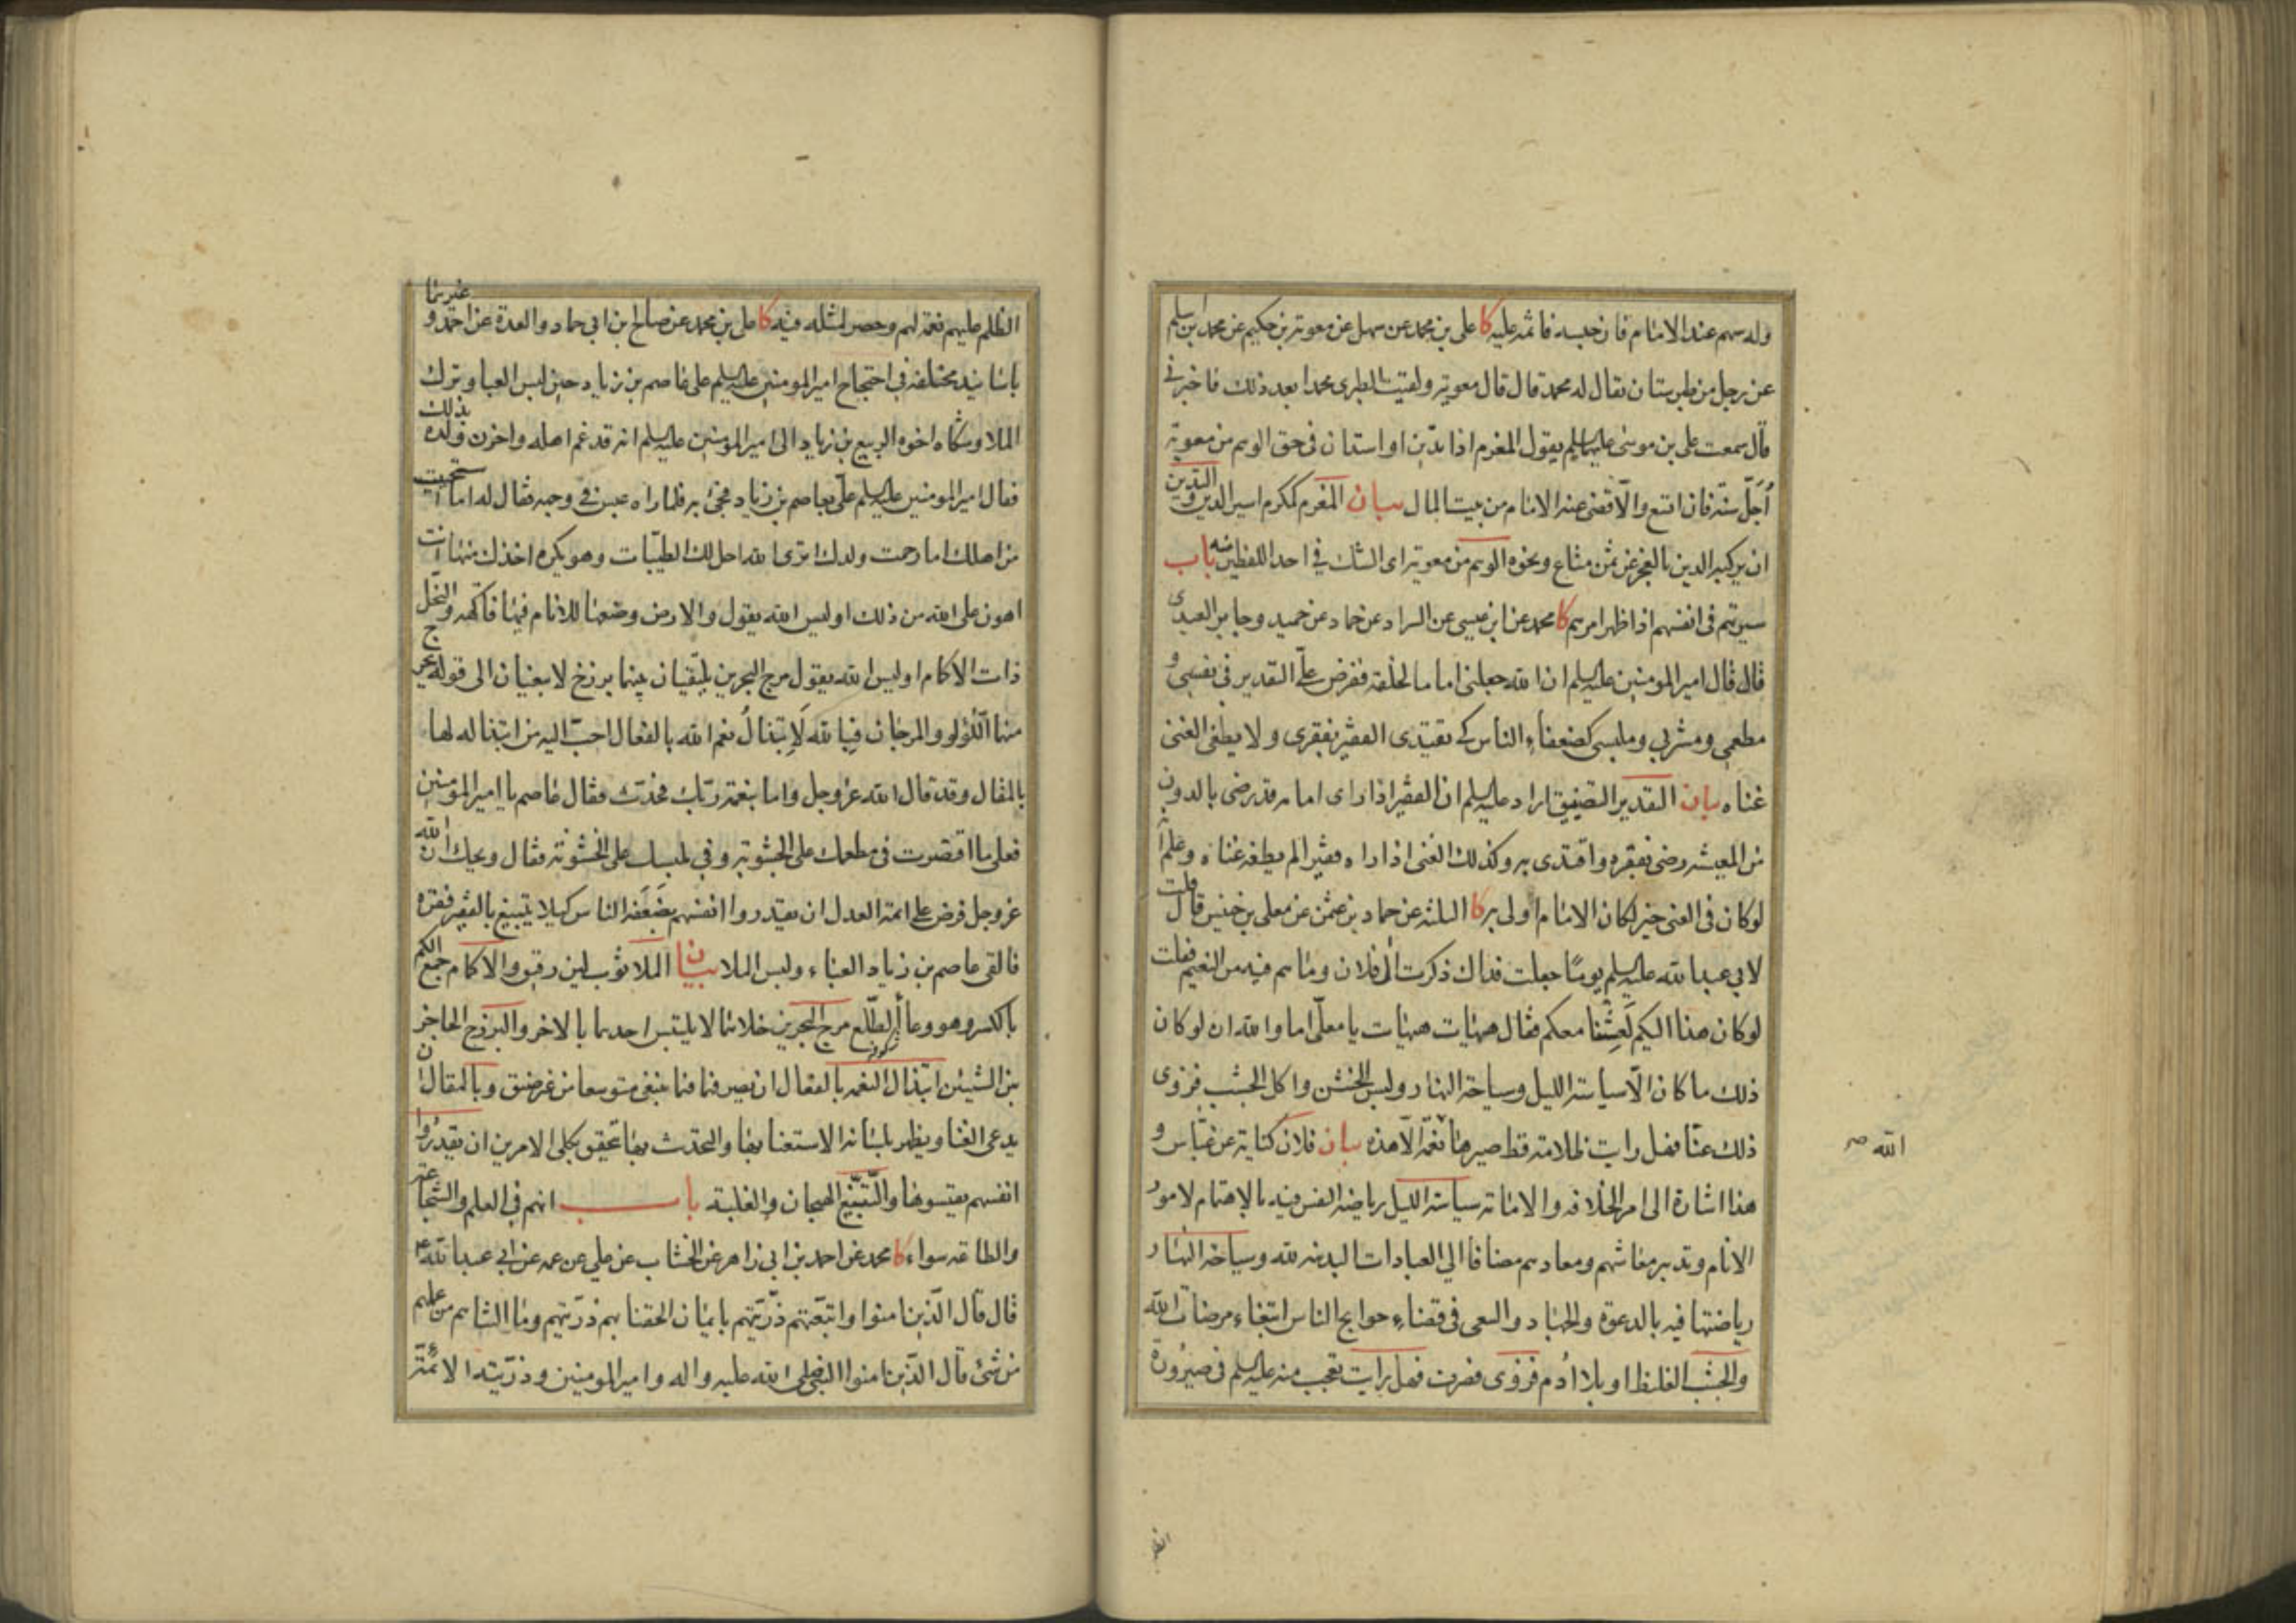 وله سهم عند الامام فان حبسه فاثمه عليه كا على بن محمد عن سهل عن معوية بن حكيم عن محمد بن اسلم
عن رجل من طبرستان يقال له محمد قال قال معوية ولقيت الطبرى محمدا بعد ذلك فاخبرنى
قال سمعت على بن موسى عليهما السلم يقول المغرم اذا تدين او استدان فى حق الوهم من معوية
أُجّل سنة فان اتسع والّا قضى عنه الامام من بيت المال بيان المغرم كمكرم اسير الدين والتدين
ان يركبه الدين بالعجز عن ثمن متاع ونحوه الوهم من معوية اى الشك فى احد اللفظين منه باب
سيرتهم فى انفسهم اذا ظهر امرهم كا محمد عن ابن عيسى عن السراد عن حماد عن حميد وجابر العبدى
قال قال امير المومنين عليه السلم ان الله جعلنى اماما لخلقه ففرض علىّ التقدير فى نفسى و
مطعمى ومشربى وملبسى كضعفاء الناس كى يقتدى الفقير بفقرى ولا يطغى الغنى
غناه بيان التقدير التضييق اراد عليه السلم ان الفقير اذا راى امامه قد رضى بالدون
من المعيشه رضى بفقره واقتدى به وكذلك الغنى اذا راه فقيرا لم يطغه غناه وعلم انه
لو كان فى الغنى خير لكان الامام اولى به كا الثلثه عن حماد بن عثمن عن معلى بن خنيس قال قلت
لابى عبد الله عليه السلم يومًا جعلت فداك ذكرت ال فلان وما هم فيه من النعيم فقلت
لو كان هذا اليكم لَعِشْنا معكم فقال هيهات هيهات يا معلّى اما والله ان لو كان
ذلك ما كان الّا سياسة الليل وسياحة النهار ولبس الخشن واكل الجشب فزوى
ذلك عنّا فهل رايت ظلامة قط صيرها نعمة الّا هذه بيان فلان كناية عن عبّاس و
الله صح
هذا اشارة الى امر الخلافه والامامة سياسة الليل رياضة النفس فيه بالاهتمام لامور
الانام وتدبير معاشهم ومعادهم مضافا الى العبادات البدنيه لله وسياحة النهار
رياضتها فيه بالدعوة والجهاد والسعى فى قضاء حوايج الناس ابتغاء مرضات الله
والجشب الغليظ او بلا أدم فزوى فصرف فهل رايت تعجب منه عليه السلم فى صيرورة
الظلم
الظلم عليهم نعمة لهم وحصر لمثله فيه كا على بن محمد عن صالح بن ابى حماد والعدة عن احمد وغيرهما
باسانيد مختلفه فى احتجاج امير المومنين عليه السلم على عاصم بن زياد حين لبس العبا وترك
الملا وشكاه اخوه الربيع بن زياد الى امير المومنين عليه السلم انه قد غم اهله واحزن ولده بذلك
فقال امير المومنين عليه السلم علىّ بعاصم بن زياد فجئ به فلما راه عبس فى وجهه فقال له اما استحييت
من اهلك اما رحمت ولدك اترى الله احل لك الطيّبات وهو يكره اخذك منها انت
اهون على الله من ذلك اوليس الله يقول والارض وضعها للانام فيها فاكهة والنخل
ذات الاكمام اوليس الله يقول مرج البحرين يلتقيان بينهما برزخ لا يبغيان الى قوله يخرج
منهما اللّؤلؤ والمرجان فبالله لَابتذالُ نعم الله بالفعال احبّ اليه من ابتذاله لها
بالمقال وقد قال الله عز وجل واما بنعمة ربّك فحدّث فقال عاصم يا امير المومنين
فعلى ما اقتصرت فى مطعمك على الجشوبة وفى ملبسك على الخشونة فقال ويحك ان الله
عز وجل فرض على ائمة العدل ان يقدروا انفسهم بضَعَفة الناس كيلا يتبيغ بالفقير فقره
فالقى عاصم بن زياد العباء ولبس الملا بيان الملا ثوب لين رقيق والاكمام جمع الكم
بالكسر وهو وعاء الطّلع مرج البحرين خلاهما لا يلتبس احدهما بالاخر والبرزخ الحاجز
بين الشيئين ابتذال النعمه بالفعال ان يصرفها فيما ينبغى متوسعا من غير ضيق وبالمقال ان يكون
يدعى الغنا ويظهر بلسانه الاستغنا بها والتحدّث بها تحقق بكلى الامرين ان يقدروا
انفسهم يقيسوها والتبيّغ الهيجان والغلبة باب انهم فى العلم والشجاعة
والطاعه سواء كا محمد عن احمد بن ابى زاهر عن الخشاب عن على عن عمه عن ابى عبد الله ع
قال قال الّذين امنوا واتبعتهم ذرّيتهم بايمان الحقنا بهم ذرّيتهم وما التناهم من عملهم
من شئ قال الذين امنوا النبى صلى الله عليه واله وامير المومنين وذرّيته الائمّة